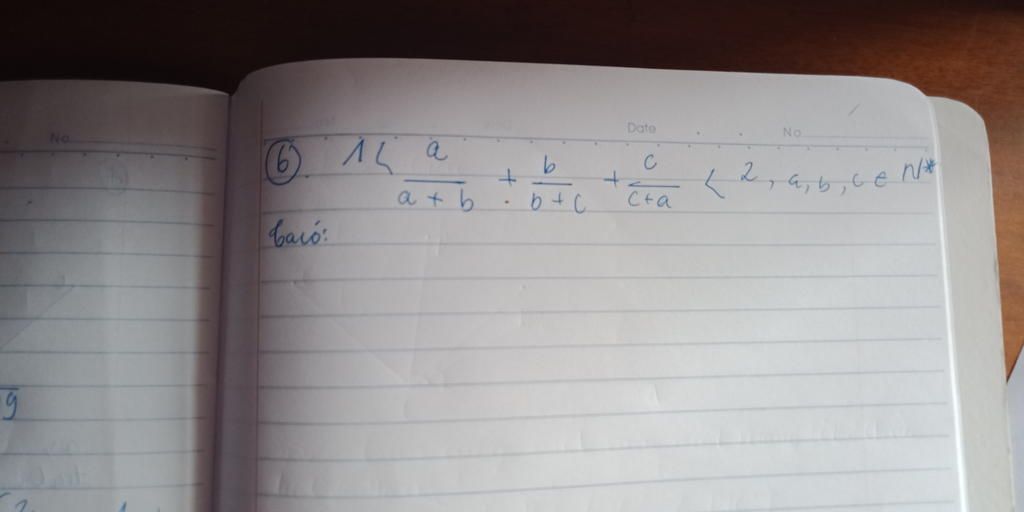 No
Date No
6. 1 < a/(a + b) + b/(b + c) + c/(c+a) < 2, a, b, c ∈ N*
g